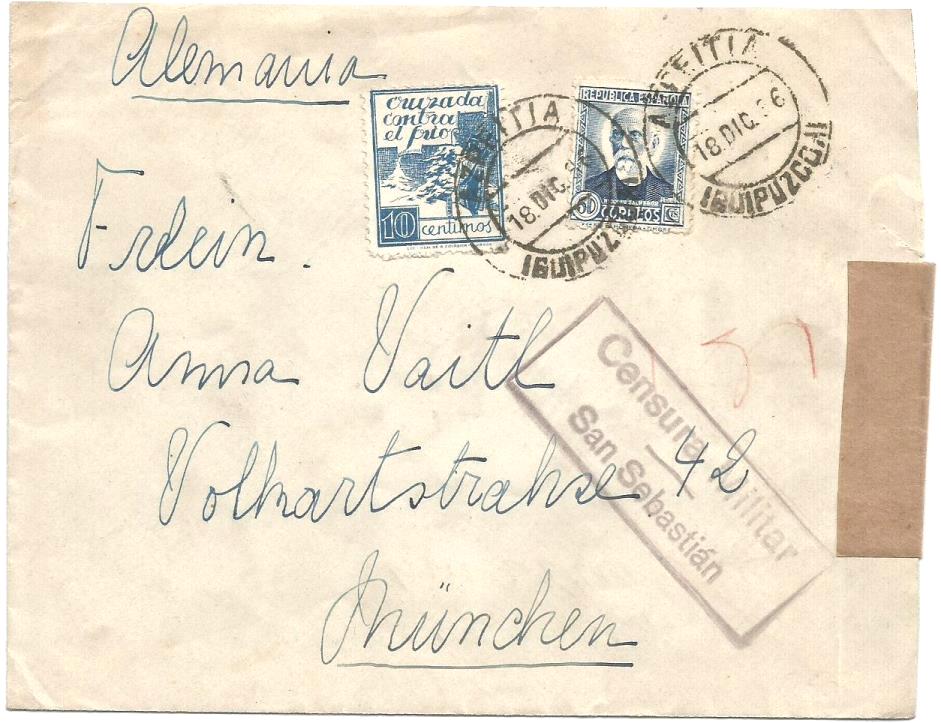 Alemania
cruzada
contra
el frio
10 centimos
REPUBLICA ESPAÑOLA
NICOLAS SALMERON
60 CORREOS Cs
AZPEITIA
18.DIC.36
(GUIPUZCOA)
AZPEITIA
18.DIC.36
(GUIPUZCOA)
Frlein.
Anna Vaitl
Volkartstrahse 42
München
Censura Militar
San Sebastián